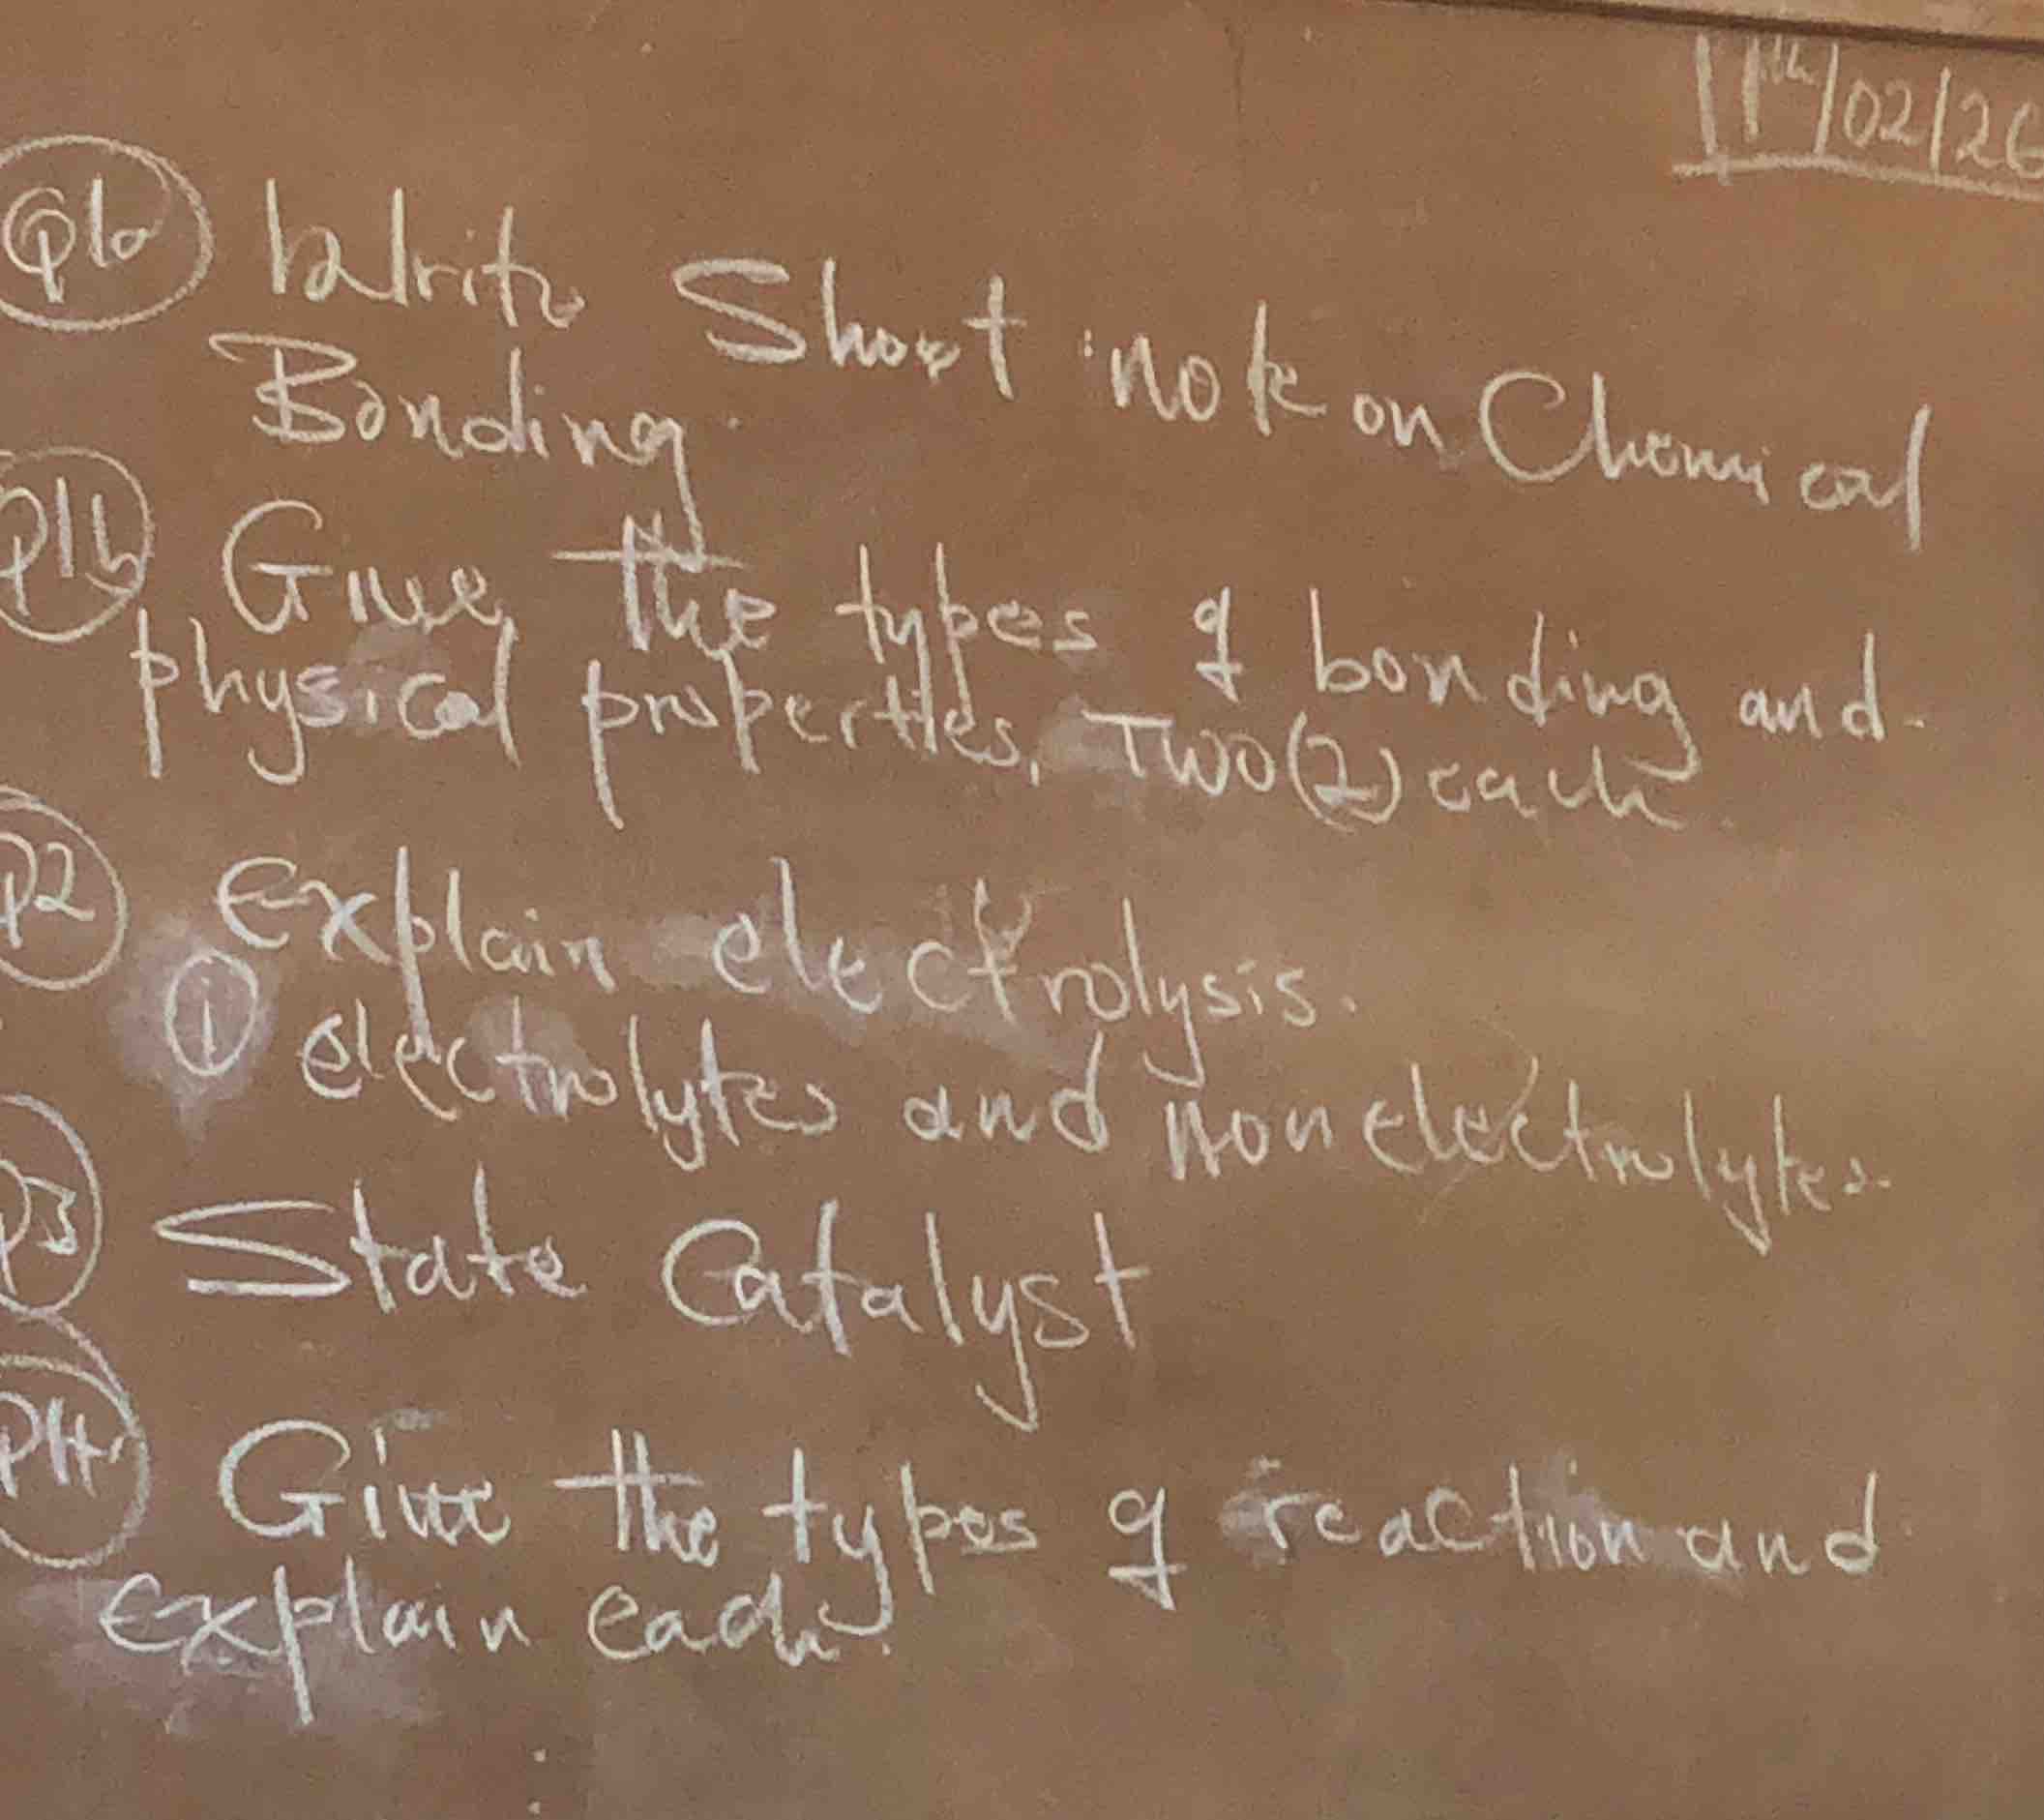 11th/02/26
Q1a Write Short note on Chemical
Bonding.
Q1b Give the types of bonding and
physical properties, Two(2) each.
Q2 explain electrolysis.
i electrolytes and non electrolytes.
Q3 State Catalyst
Q4 Give the types of reaction and
explain each.